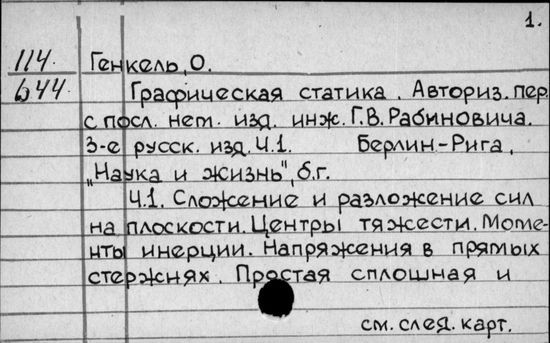 1.
114. Генкель, О.
644. Графическая статика. Авториз. пер.
с посл. нем. изд. инж. Г.В. Рабиновича.
3-е русск. изд. Ч.1. Берлин-Рига,
„Наука и жизнь", б.г.
Ч.1. Сложение и разложение сил
на плоскости. Центры тяжести. Моме-
нты инерции. Напряжения в прямых
стержнях. Простая сплошная и
см. след. карт.